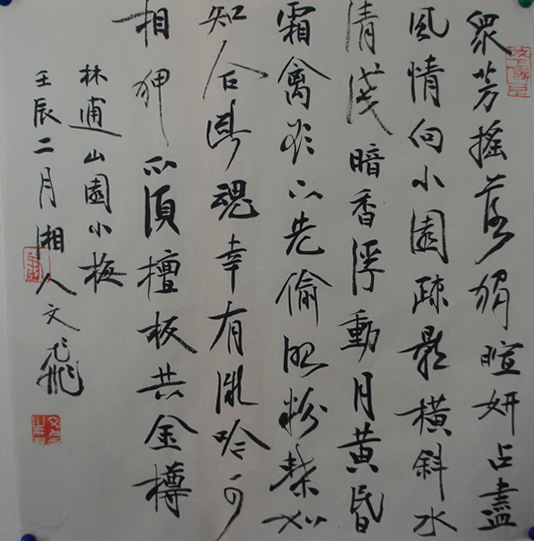 眾芳搖落獨暄妍占盡
風情向小園疎影橫斜水
清淺暗香浮動月黃昏
霜禽欲下先偷眼粉蝶如
知合斷魂幸有微吟可
相狎不須檀板共金樽
林逋山園小梅
壬辰二月湘人文飛